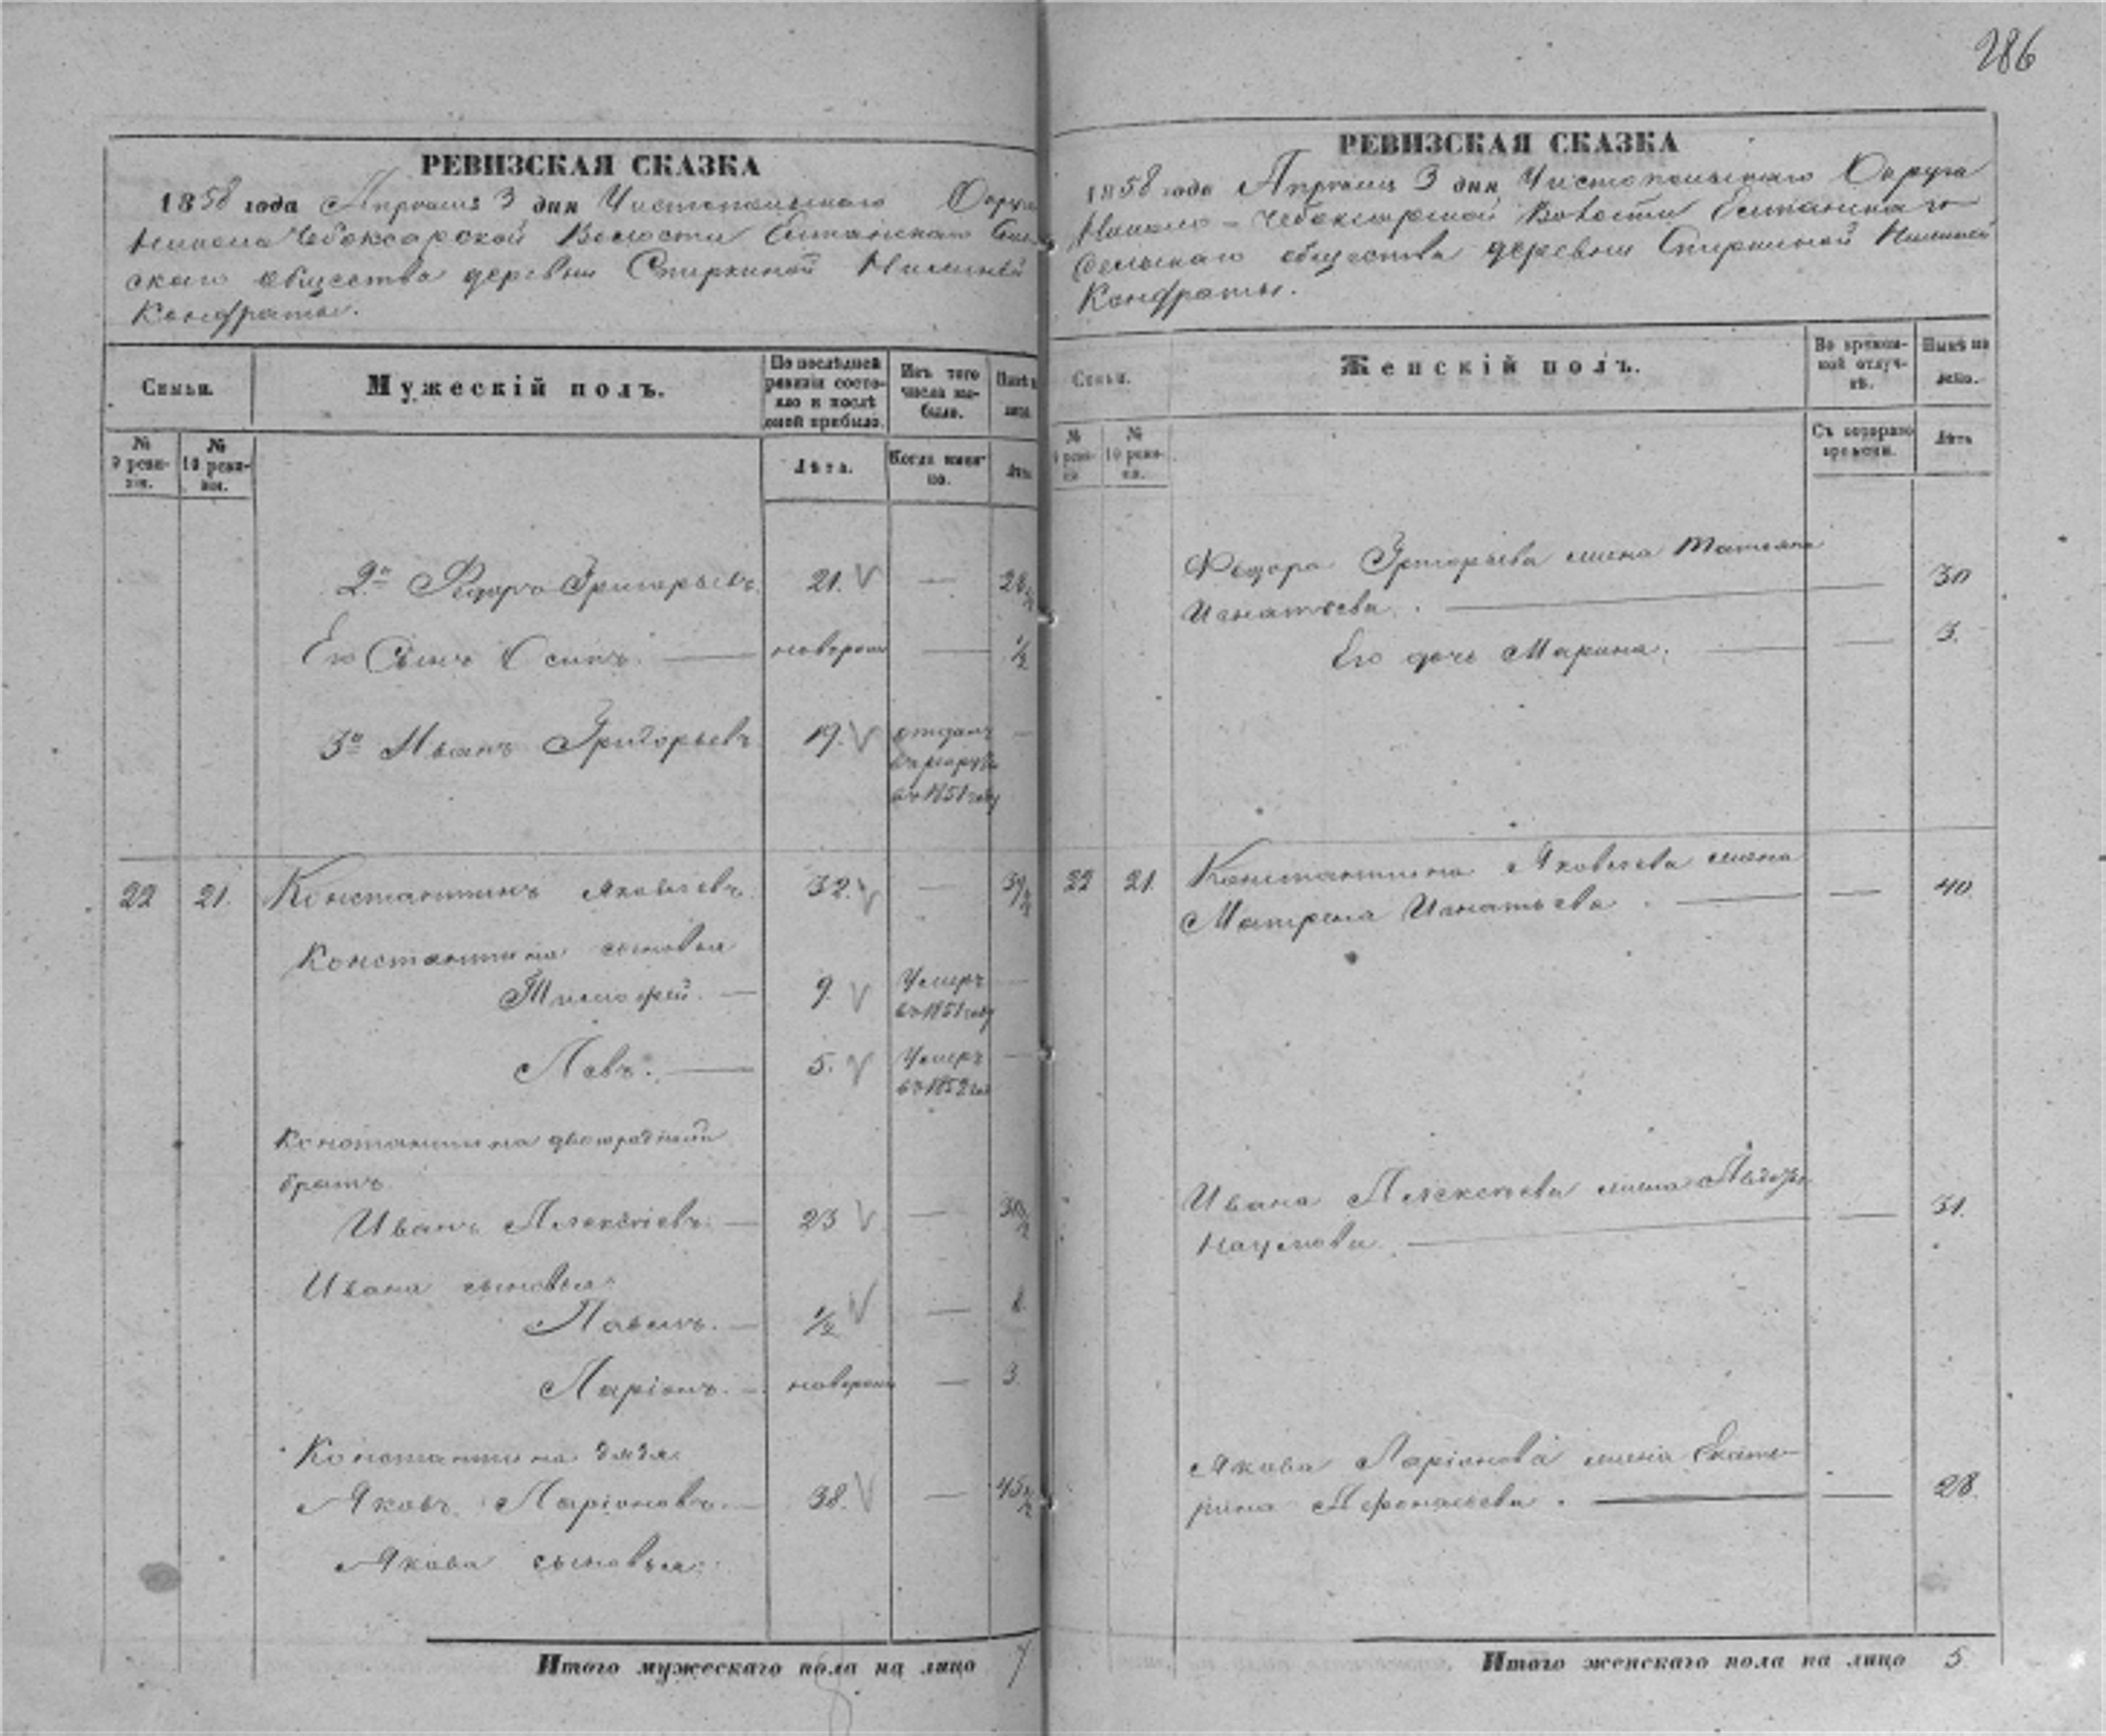 286
РЕВИЗСКАЯ СКАЗКА
1858 года Апреля 3 дня Чистопольскаго Округа
Чебоксарской Волости Елтанскаго
скаго общества деревни Спиркиной
Кондраты.
Семьи.
Мужескій полъ.
По послѣдней ревизіи состояло и послѣ оной прибыло.
Изъ того числа выбыло.
Нынѣ на лицо.
№ 9 ревизіи.
№ 10 ревизіи.
Лѣта.
Когда именно.
Лѣта.
2е Федоръ Григорьевъ. 21. — 28½
Его Сынъ Осипъ. — новорож — ½
3е Иванъ Григорьевъ 19. отданъ —
въ рекруты
въ 1851 году
22 21. Константинъ Яковлевъ. 32. — 39½
Константина сыновья
Тимофей. — 9. Умеръ —
въ 1851 году
Левъ. — 5. Умеръ —
въ 1852 го
Константина двоюродный
братъ
Иванъ Алексѣевъ. — 23 — 30½
Ивана сыновья:
Павелъ. — ½ —
Ларіонъ. — новорож — 3.
Константина дядя
Яковъ Ларіоновъ. — 38. — 45½
Якова сыновья:
Итого мужескаго пола на лицо 7
РЕВИЗСКАЯ СКАЗКА
1858 года Апреля 3 дня Чистопольскаго Округа
Чебоксарской Волости Елтанскаго
Сельскаго общества деревни Спиркиной
Кондраты.
Семьи.
Женскій полъ.
Во временной отлучкѣ.
Нынѣ на лицо.
№ 9 ревизіи
№ 10 ревизіи.
Съ котораго времени.
Лѣта
Федора Григорьева жена Татьяна
Игнатьева. — — 30
Его дочь Марина. — — 3.
22 21. Константина Яковлева жена
Матрена Игнатьева. — — 40.
Ивана Алексѣева жена
Наумова. — — 31.
Якова Ларіонова жена Екате-
рина Афонасьева. — — 28.
Итого женскаго пола на лицо 5